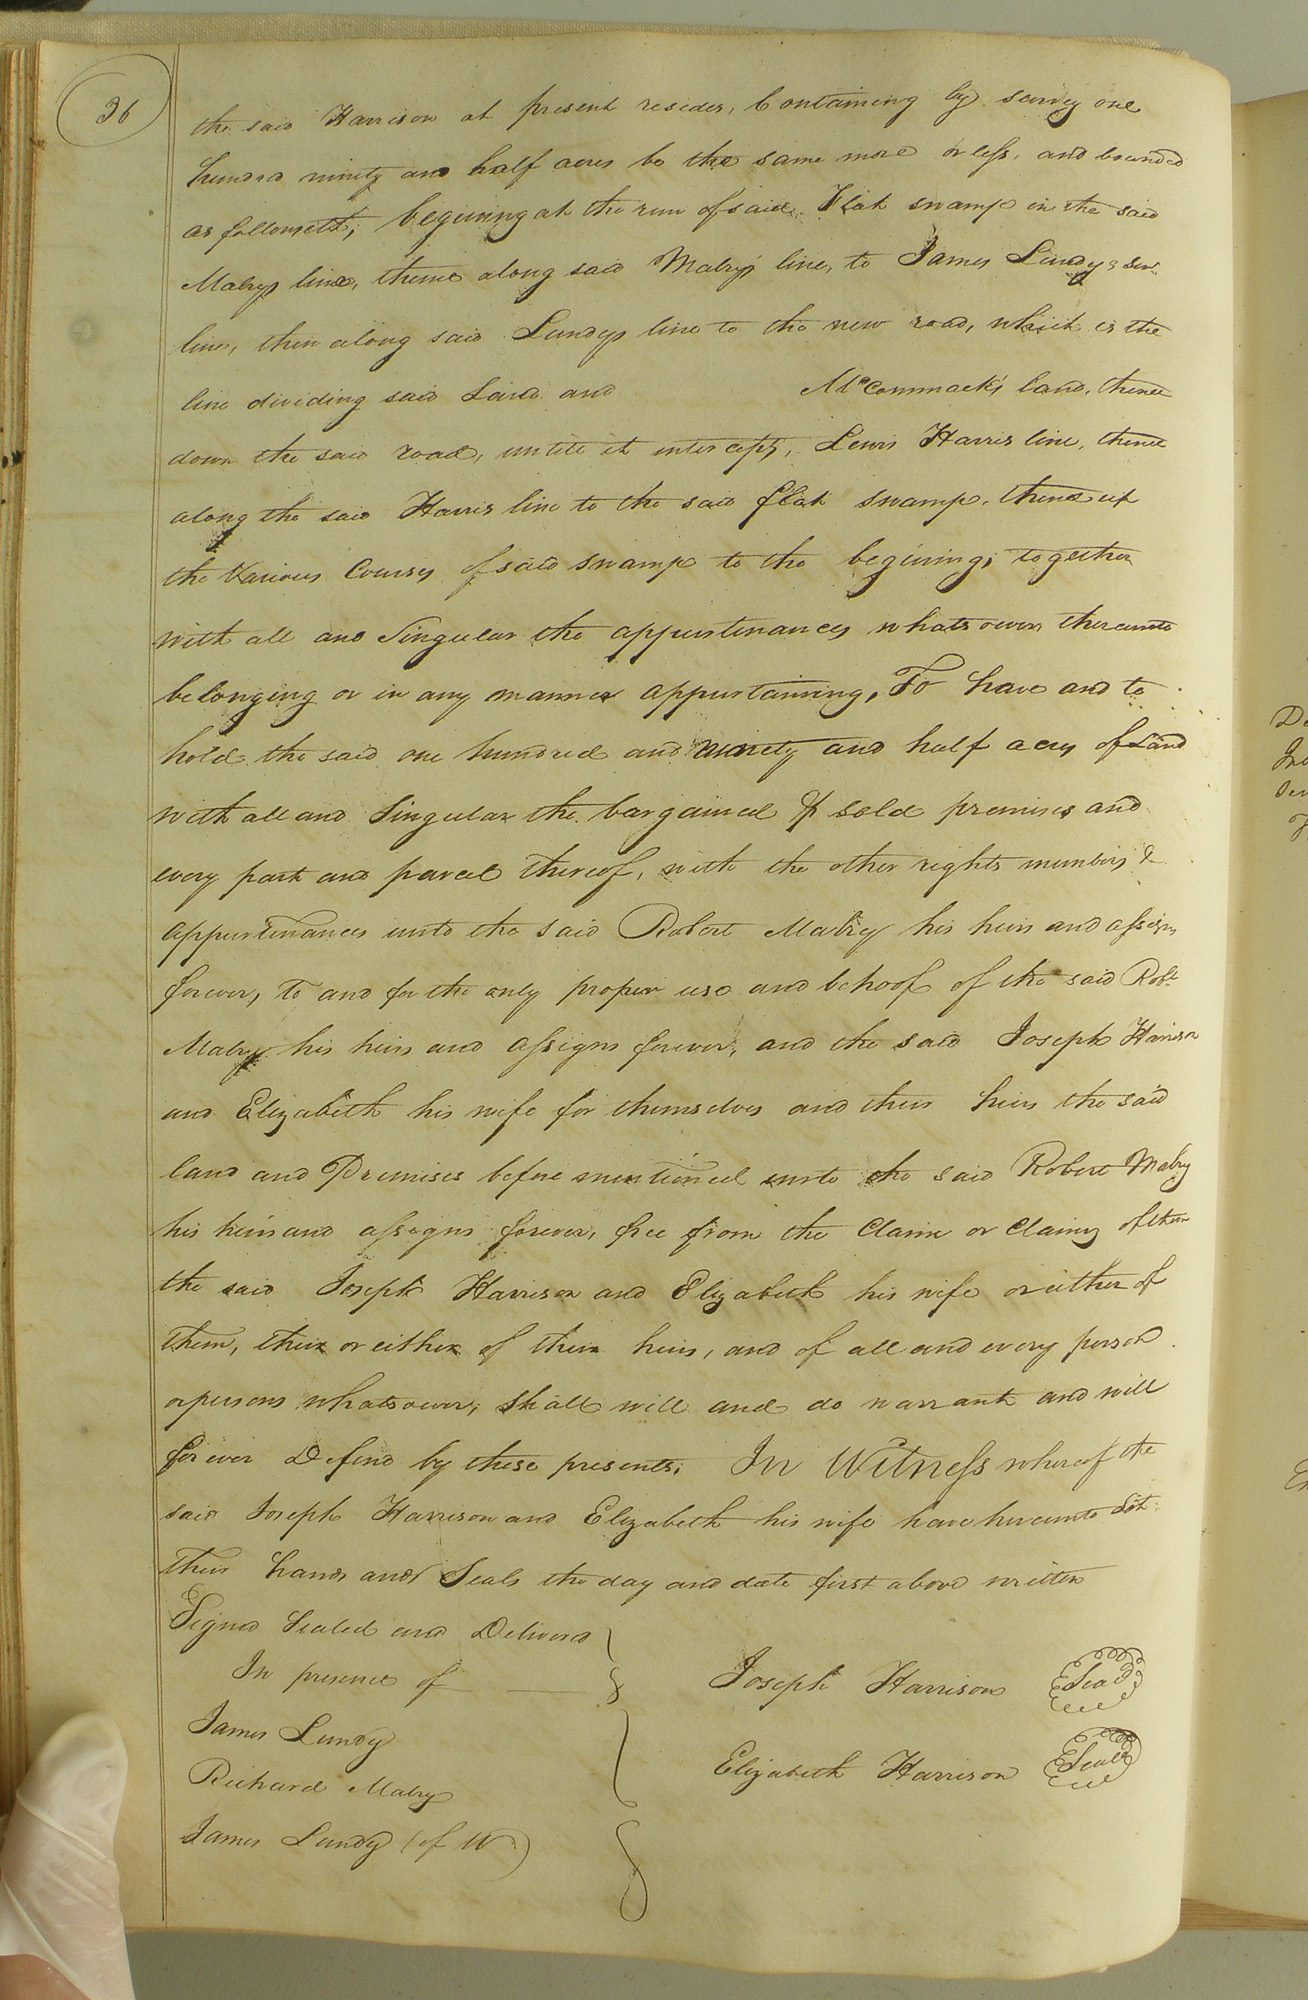 36
the said Harrison at present resides, Containing by survey one
hundred ninety and half acres be the same more or less, and bounded
as followeth, begining at the run of said Flat swamp in the said
Mabrys line, thence along said Mabrys line, to James Lundys Senr.
line, then along said Lundys line to the new road, which is the
line dividing said Land and McCommack's Land, thence
down the said road, untill it intercepts, Lewis Harris line, thence
along the said Harris line to the said flat swamp, thence up
the Various Courses of said swamp to the begining; together
with all and Singular the appurtenances whatsoever thereunto
belonging or in any manner appurtaining, To have and to
hold the said one hundred and ninety and half acres of Land
with all and Singular the bargained & sold premises and
every part and parcel thereof, with the other rights members &
appurtenances unto the said Robert Mabry his heirs and assigns
forever, to and for the only proper use and behoof of the said Robt.
Mabry his heirs and assigns forever, and the said Joseph Harrison
and Elizabeth his wife for themselves and their heirs the said
land and Premises before mentioned unto the said Robert Mabry
his heirs and assigns forever, free from the Claim or Claims of them
the said Joseph Harrison and Elizabeth his wife or either of
them, their or either of their heirs, and of all and every person
or persons whatsoever, shall will and do warrant and will
forever Defend by these presents. In Witness whereof the
said Joseph Harrison and Elizabeth his wife have hereunto Set
their hands and Seals the day and date first above written
Signed Sealed and Delivered
In presence of
Joseph Harrison Seal
James Lundy
Elizabeth Harrison Seal
Richard Mabry
James Lundy (of W)